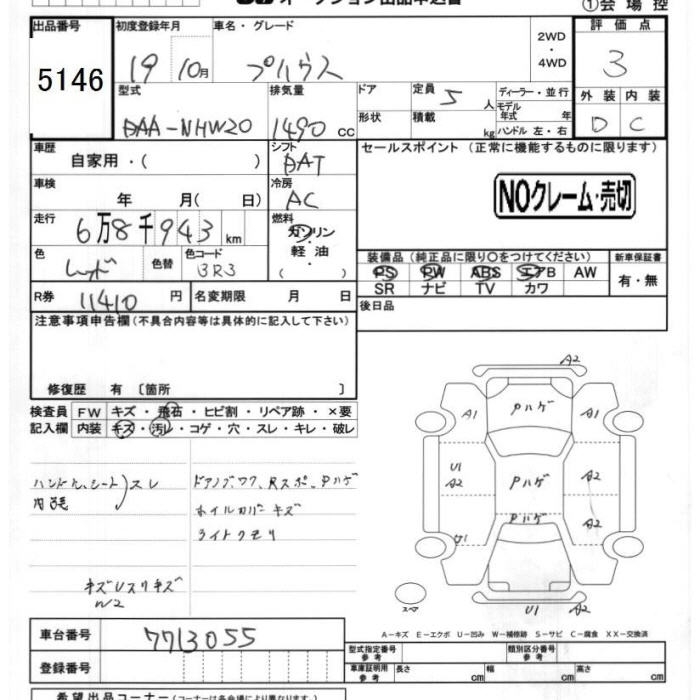 ①会場控
出品番号 初度登録年月 車名・グレード 2WD・4WD 評価点
5146 19 10月 プリウス 3
型式 排気量 ドア 定員 5人 ディーラー・並行 外装 内装
DAA-NHW20 1490 cc 形状 積載 kg モデル年式 年 D C
ハンドル 左・右
車歴 自家用・( ) シフト セールスポイント (正常に機能するものに限ります)
車検 年 月( 日) 冷房 AC
NOクレーム・売切
走行 6万8千943km 燃料 ガソリン・軽油・( )
色 レッド 色替 色コード 3R3
装備品 (純正品に限り○をつけてください) 新車保証書
PS PW ABS エアB AW 有・無
SR ナビ TV カワ
R券 11410円 名変期限 月 日 後日品
注意事項申告欄(不具合内容等は具体的に記入して下さい)
修復歴 有 〔箇所 〕
検査員 FW キズ・飛石・ヒビ割・リペア跡・×要
記入欄 内装 キズ・汚レ・コゲ・穴・スレ・キレ・破レ
A2
A1 Pハゲ A1
U1 A2 Pハゲ A2
Pハゲ A2
U1
U1 A2
ハンドル、シート スレ
ホイルカバー キズ
ライトクモリ
W2
スペア
A-キズ E-エクボ U-凹み W-補修跡 S-サビ C-腐食 XX-交換済
車台番号 7713055
登録番号
型式指定番号 参考 類別区分番号 参考
車庫証明用 参考 長さ cm 幅 cm 高さ cm
希望出品コーナー(コーナーは各会場により異なります)